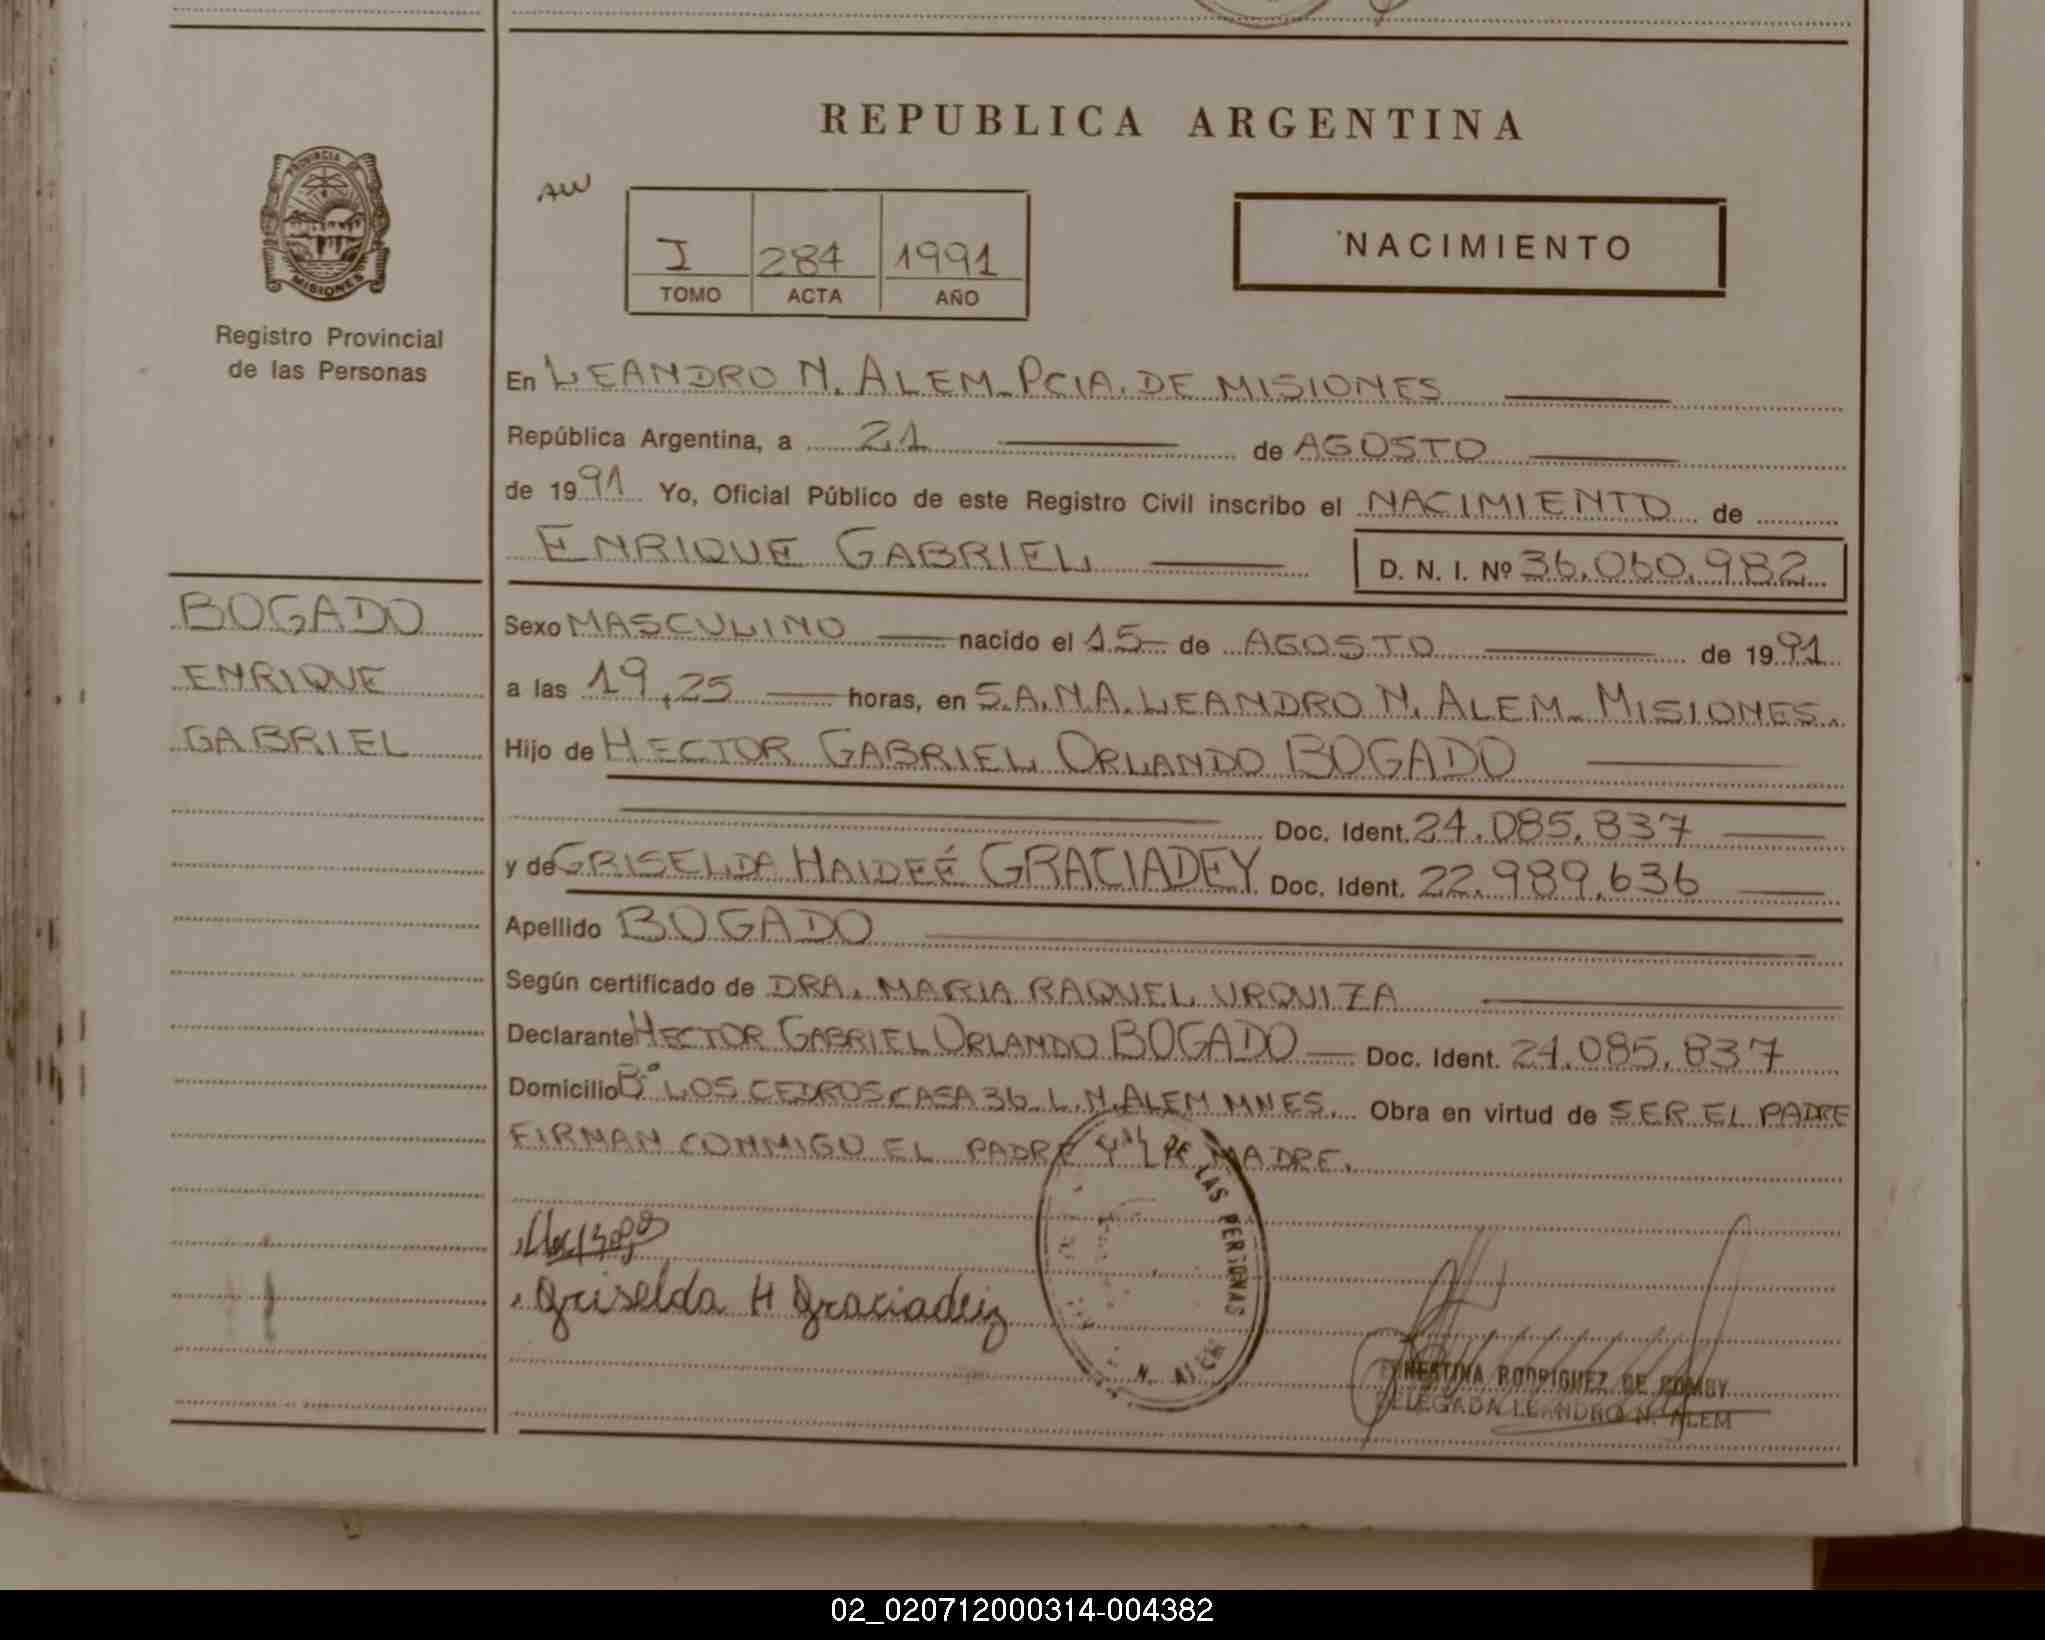 REPUBLICA ARGENTINA
PROVINCIA DE
MISIONES
Registro Provincial
de las Personas
AW
I 284 1991
TOMO ACTA AÑO
NACIMIENTO
En LEANDRO N. ALEM-PCIA. DE MISIONES
República Argentina, a 21 de AGOSTO
de 1991 Yo, Oficial Público de este Registro Civil inscribo el NACIMIENTO de
ENRIQUE GABRIEL D. N. I. Nº 36.060.982
BOGADO
ENRIQUE
GABRIEL
Sexo MASCULINO nacido el 15 de AGOSTO de 1991
a las 19,25 horas, en S.A.N.A. LEANDRO N. ALEM- MISIONES.
Hijo de HECTOR GABRIEL ORLANDO BOGADO
Doc. Ident. 24.085.837
y de GRISELDA HAIDEÉ GRACIADEY Doc. Ident. 22.989.636
Apellido BOGADO
Según certificado de DRA. MARIA RAQUEL URQUIZA
Declarante HECTOR GABRIEL ORLANDO BOGADO Doc. Ident. 24.085.837
Domicilio Bº LOS CEDROS CASA 36- L.N. ALEM MNES. Obra en virtud de SER EL PADRE
FIRMAN CONMIGO EL PADRE Y LA MADRE.
Griselda H Graciadeiz
DE LAS PERSONAS
N. ALEM
ERNESTINA RODRIGUEZ DE
DELEGADA LEANDRO N. ALEM
02_020712000314-004382